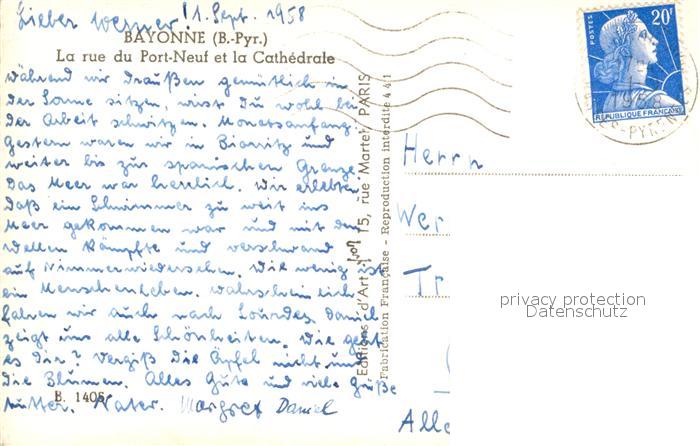 Lieber Werner! 1. Sept. 1958
BAYONNE (B.-Pyr.)
La rue du Port-Neuf et la Cathédrale
während wir draußen gemütlich in
der Sonne sitzen, wirst Du wohl bei
der Arbeit schwitzen. Monatsanfang.
Gestern waren wir in Biarritz und
weiter bis zur spanischen Grenze.
Das Meer war herrlich. Wir erlebten
daß ein Schwimmer zu weit ins
Meer gekommen war und mit den
Wellen kämpfte und verschwand
auf Nimmerwiedersehen. Wie wenig ist
ein Menschenleben. Wahrscheinlich
fahren wir auch nach Lourdes, Daniel
zeigt uns alle Schönheiten. Wie geht
es dir? Vergiß die Äpfel nicht und
die Blumen. Alles Gute und viele Grüße
B. 1405
Mutter. Vater. Margret Daniel
Editions d'Art 15, rue Martel, PARIS
Fabrication Française - Reproduction interdite 441
POSTES
20F
REPUBLIQUE FRANÇAISE
1958
Herrn
Wer
Tr
Alle
privacy protection
Datenschutz